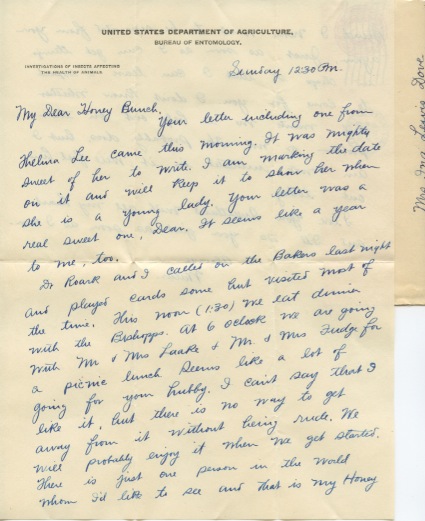 UNITED STATES DEPARTMENT OF AGRICULTURE,
BUREAU OF ENTOMOLOGY.
INVESTIGATIONS OF INSECTS AFFECTING
THE HEALTH OF ANIMALS.
Sunday 12:30 P.M.
My Dear Honey Bunch,
Your letter including one from
Thelma Lee came this morning. It was mighty
sweet of her to write. I am marking the date
on it and will keep it to show her when
she is a young lady. Your letter was a
real sweet one, Dear. It seems like a year
to me, too.
Dr Roark and I called on the Bakers last night
and played cards some but visited most of
the time. This noon (1:30) we eat dinner
with the Bishopps. At 6 oclock we are going
with Mr & Mrs Laake & Mr. & Mrs Fudge for
a picnic lunch. Seems like a lot of
going for your hubby. I can't say that I
like it, but there is no way to get
away from it without being rude. We
will probably enjoy it when we get started.
There is just one person in the world
whom I'd like to see and that is my Honey
Mrs Lewis Dove